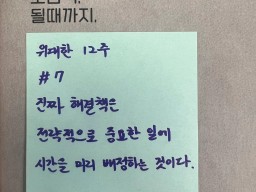 될때까지.
위대한 12주
#7
진짜 해결책은
전략적으로 중요한 일에
시간을 미리 배정하는 것이다.